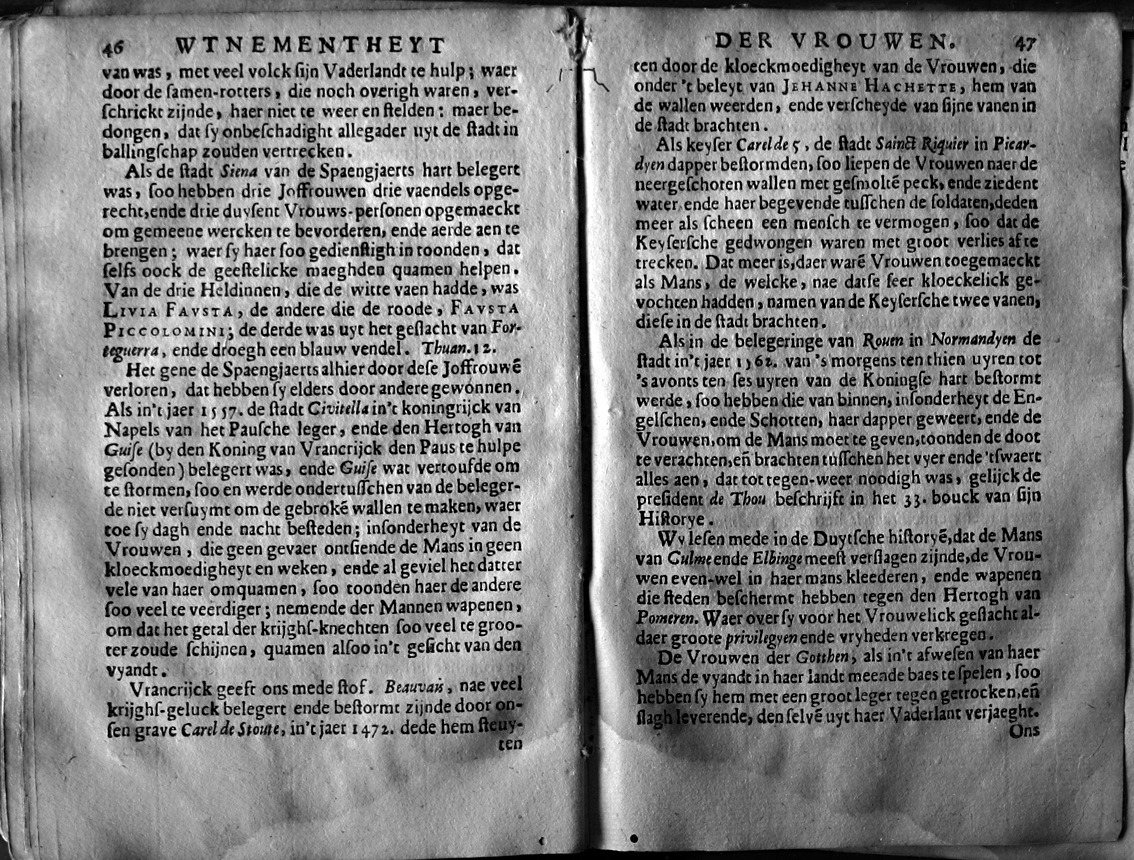 46 WTNEMENTHEYT
van was, met veel volck ſijn Vaderlandt te hulp; waer
door de ſamen-rotters, die noch overigh waren, ver-
ſchrickt zijnde, haer niet te weer en ſtelden: maer be-
dongen, dat ſy onbeſchadight allegader uyt de ſtadt in
ballingſchap zouden vertrecken.
Als de ſtadt Siena van de Spaengjaerts hart belegert
was, ſoo hebben drie Joffrouwen drie vaendels opge-
recht, ende drie duyſent Vrouws-perſonen opgemaeckt
om gemeene wercken te bevorderen, ende aerde aen te
brengen; waer ſy haer ſoo gedienſtigh in toonden, dat
ſelfs oock de geeſtelicke maeghden quamen helpen.
Van de drie Heldinnen, die de witte vaen hadde, was
LIVIA FAVSTA, de andere die de roode, FAVSTA
PICCOLOMINI; de derde was uyt het geſlacht van For-
teguerra, ende droegh een blauw vendel. Thuan. 12.
Het gene de Spaengjaerts alhier door deſe Joffrouwē
verloren, dat hebben ſy elders door andere gewonnen.
Als in't jaer 1557. de ſtadt Civitella in't koningrijck van
Napels van het Pauſche leger, ende den Hertogh van
Guiſe (by den Koning van Vrancrijck den Paus te hulpe
geſonden) belegert was, ende Guiſe wat vertoufde om
te ſtormen, ſoo en werde ondertuſſchen van de beleger-
de niet verſuymt om de gebrokē wallen te maken, waer
toe ſy dagh ende nacht beſteden; inſonderheyt van de
Vrouwen, die geen gevaer ontſiende de Mans in geen
kloeckmoedigheyt en weken, ende al geviel het datter
vele van haer omquamen, ſoo toonden haer de andere
ſoo veel te veerdiger; nemende der Mannen wapenen,
om dat het getal der krijghſ-knechten ſoo veel te groo-
ter zoude ſchijnen, quamen alſoo in't geſicht van den
vyandt.
Vrancrijck geeft ons mede ſtof. Beauvais, nae veel
krijghſ-geluck belegert ende beſtormt zijnde door on-
ſen grave Carel de Stoute, in't jaer 1472. dede hem ſteuy-
ten
DER VROUWEN. 47
ten door de kloeckmoedigheyt van de Vrouwen, die
onder 't beleyt van JEHANNE HACHETTE, hem van
de wallen weerden, ende verſcheyde van ſijne vanen in
de ſtadt brachten.
Als keyſer Carel de 5, de ſtadt Sainct Riquier in Picar-
dyen dapper beſtormden, ſoo liepen de Vrouwen naer de
neergeſchoten wallen met geſmoltē peck, ende ziedent
water, ende haer begevende tuſſchen de ſoldaten, deden
meer als ſcheen een menſch te vermogen, ſoo dat de
Keyſerſche gedwongen waren met groot verlies af te
trecken. Dat meer is, daer warē Vrouwen toegemaeckt
als Mans, de welcke, nae datſe ſeer kloeckelick ge-
vochten hadden, namen van de Keyſerſche twee vanen,
dieſe in de ſtadt brachten.
Als in de belegeringe van Rouen in Normandyen de
ſtadt in't jaer 1562. van 's morgens ten thien uyren tot
's avonts ten ſes uyren van de Koningſe hart beſtormt
werde, ſoo hebben die van binnen, inſonderheyt de En-
gelſchen, ende Schotten, haer dapper geweert, ende de
Vrouwen, om de Mans moet te geven, toonden de doot
te verachten, eñ brachten tuſſchen het vyer ende 'tſwaert
alles aen, dat tot tegen-weer noodigh was, gelijck de
preſident de Thou beſchrijft in het 33. bouck van ſijn
Hiſtorye.
Wy leſen mede in de Duytſche hiſtoryē, dat de Mans
van Culme ende Elbinge meeſt verſlagen zijnde, de Vrou-
wen even-wel in haer mans kleederen, ende wapenen
die ſteden beſchermt hebben tegen den Hertogh van
Pomeren. Waer over ſy voor het Vrouwelick geſlacht al-
daer groote privilegyen ende vryheden verkregen.
De Vrouwen der Gotthen, als in't afweſen van haer
Mans de vyandt in haer landt meende baes te ſpelen, ſoo
hebben ſy hem met een groot leger tegen getrocken, eñ
ſlagh leverende, den ſelvē uyt haer Vaderlant verjaeght.
Ons